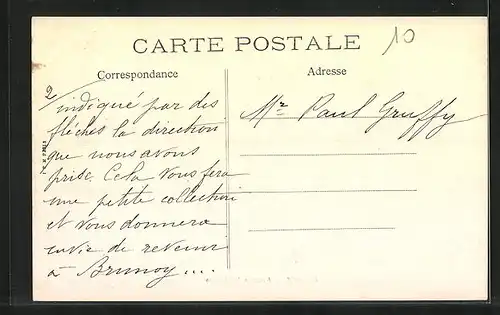 10
CARTE POSTALE
Correspondance
Adresse
2/
indiqué par des
flèches la direction
que nous avons
prise. Cela vous fera
une petite collection
et vous donnera
envie de revenir
à Brunoy....
Mr Paul Gruffy